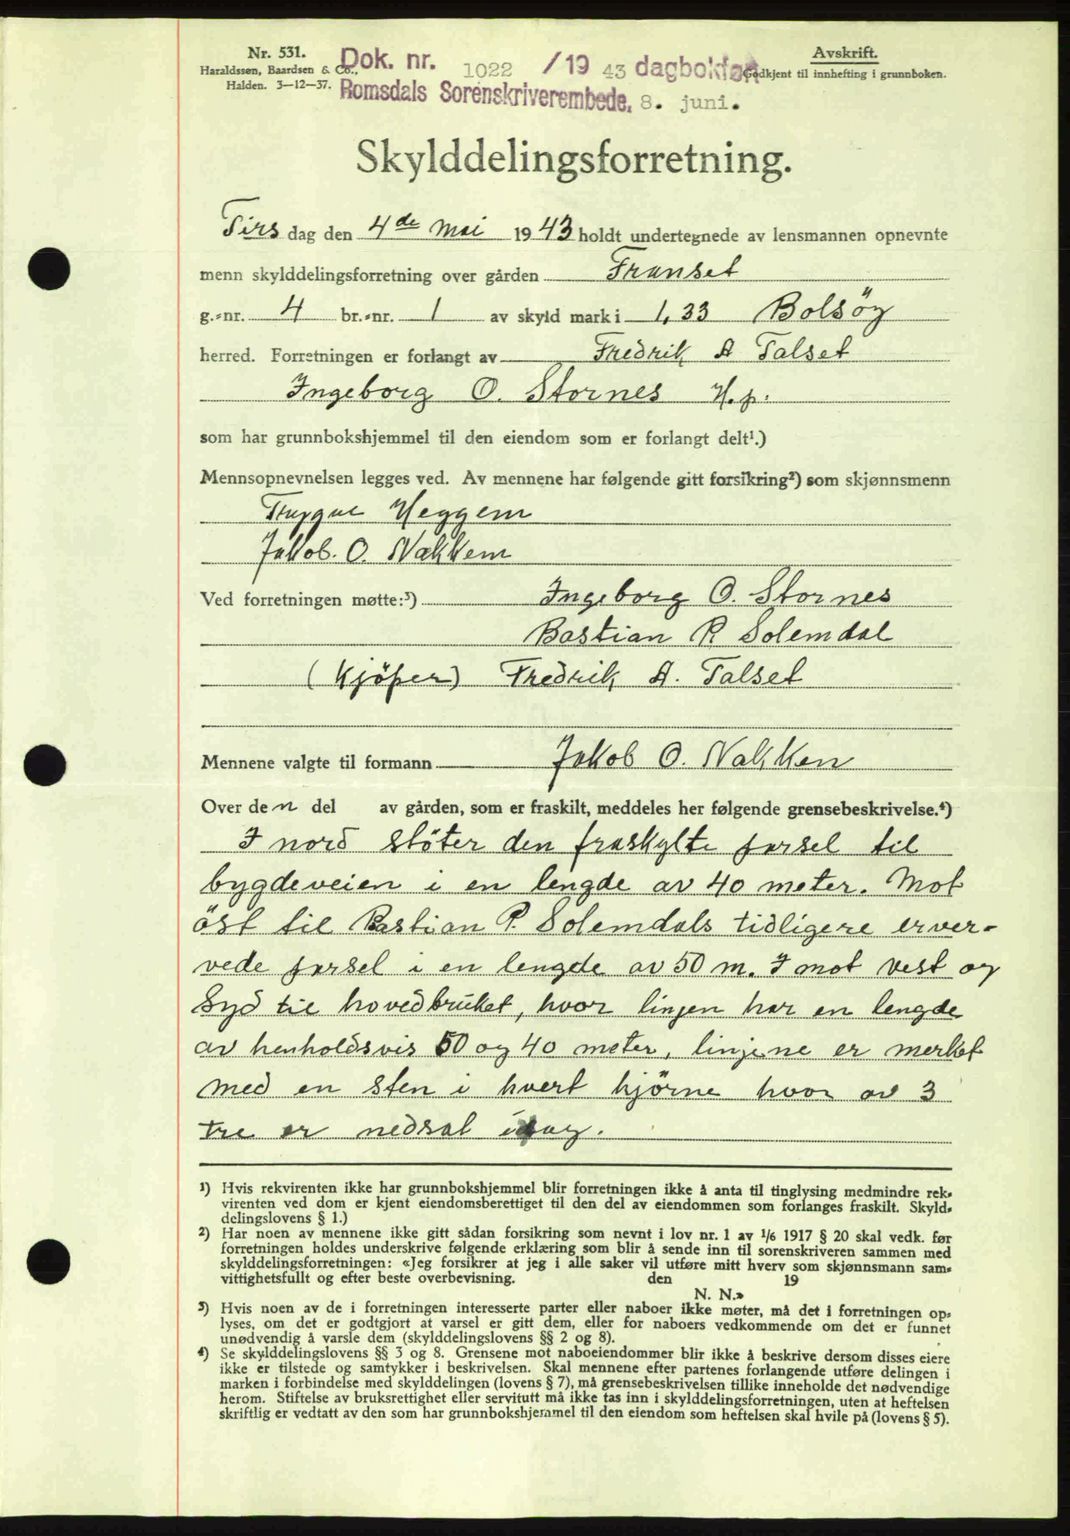 Nr. 531.
Haraldssen, Baardsen & Co.,
Halden. 3—12—37.
Dok. nr. 1022 /19 43 dagbokført
Romsdals Sorenskriverembede, 8. juni.
Avskrift.
Godkjent til innhefting i grunnboken.
Skylddelingsforretning.
Tirs dag den 4de mai 1943 holdt undertegnede av lensmannen opnevnte
menn skylddelingsforretning over gården Franset
g.-nr. 4 br.-nr. 1 av skyld mark i 1,33 Bolsöy
herred. Forretningen er forlangt av Fredrik A Talset
Ingeborg O. Stornes H.p.
som har grunnbokshjemmel til den eiendom som er forlangt delt¹.)
Mennsopnevnelsen legges ved. Av mennene har følgende gitt forsikring²) som skjønnsmenn
Trygve Heggem
Jakob. O. Nakkem
Ved forretningen møtte:³) Ingeborg O. Stornes
Bastian P. Solemdal
(Kjöper) Fredrik A. Talset
Mennene valgte til formann Jakob O. Nakken
Over den del av gården, som er fraskilt, meddeles her følgende grensebeskrivelse.⁴)
I nord stöter den fraskylte parsel til
bygdeveien i en lengde av 40 meter. Mot
öst til Bastian P. Solemdals tidligere erver-
vede parsel i en lengde av 50 m. I mot vest og
Syd til hovedbruket, hvor linjen har en lengde
av henholdsvis 50 og 40 meter, linjene er merket
med en sten i hvert hjörne hvor av 3
tre er nedsat idag.
¹) Hvis rekvirenten ikke har grunnbokshjemmel blir forretningen ikke å anta til tinglysing medmindre rek-
virenten ved dom er kjent eiendomsberettiget til den del av eiendommen som forlanges fraskilt. Skyld-
delingslovens § 1.)
²) Har noen av mennene ikke gitt sådan forsikring som nevnt i lov nr. 1 av 1/6 1917 § 20 skal vedk. før
forretningen holdes underskrive følgende erklæring som blir å sende inn til sorenskriveren sammen med
skylddelingsforretningen: «Jeg forsikrer at jeg i alle saker vil utføre mitt hverv som skjønnsmann sam-
vittighetsfullt og efter beste overbevisning. den 19
N. N.»
³) Hvis noen av de i forretningen interesserte parter eller naboer ikke møter, må det i forretningen op-
lyses, om det er godtgjort at varsel er gitt dem, eller for naboers vedkommende om det er funnet
unødvendig å varsle dem (skylddelingslovens §§ 2 og 8).
⁴) Se skylddelingslovens §§ 3 og 8. Grensene mot naboeiendommer blir ikke å beskrive dersom disses eiere
ikke er tilstede og samtykker i beskrivelsen. Skal mennene efter partenes forlangende utføre delingen i
marken i forbindelse med skylddelingen (lovens § 7), må grensebeskrivelsen tillike inneholde det nødvendige
herom. Stiftelse av bruksrettighet eller servitutt må ikke tas inn i skylddelingsforretningen, uten at heftelsen
skriftlig er vedtatt av den som har grunnbokshjemmel til den eiendom som heftelsen skal hvile på (lovens § 5).